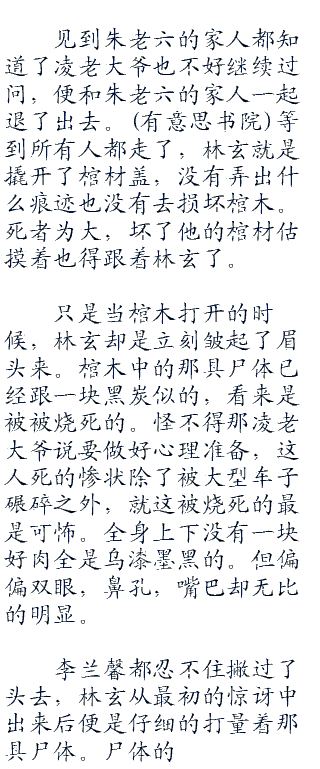 见到朱老六的家人都知
道了凌老大爷也不好继续过
问，便和朱老六的家人一起
退了出去。(有意思书院)等
到所有人都走了，林玄就是
撬开了棺材盖，没有弄出什
么痕迹也没有去损坏棺木。
死者为大，坏了他的棺材估
摸着也得跟着林玄了。
只是当棺木打开的时
候，林玄却是立刻皱起了眉
头来。棺木中的那具尸体已
经跟一块黑炭似的，看来是
被被烧死的。怪不得那凌老
大爷说要做好心理准备，这
人死的惨状除了被大型车子
碾碎之外，就这被烧死的最
是可怖。全身上下没有一块
好肉全是乌漆墨黑的。但偏
偏双眼，鼻孔，嘴巴却无比
的明显。
李兰馨都忍不住撇过了
头去，林玄从最初的惊讶中
出来后便是仔细的打量着那
具尸体。尸体的